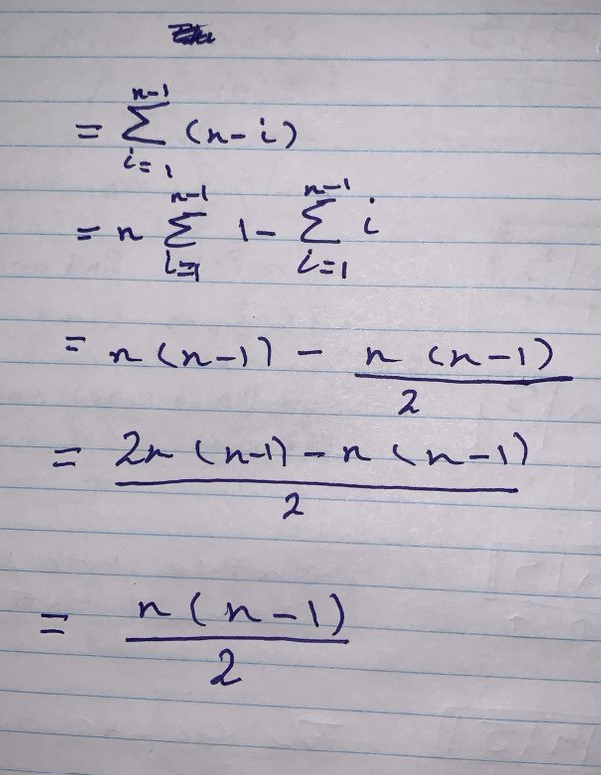 = \sum_{i=1}^{n-1} (n-i)
= n \sum_{i=1}^{n-1} 1 - \sum_{i=1}^{n-1} i
= n(n-1) - \frac{n(n-1)}{2}
= \frac{2n(n-1) - n(n-1)}{2}
= \frac{n(n-1)}{2}